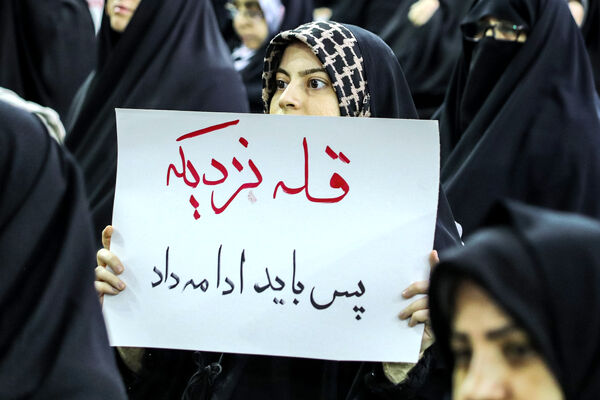 قله نزدیکه
پس باید ادامه داد